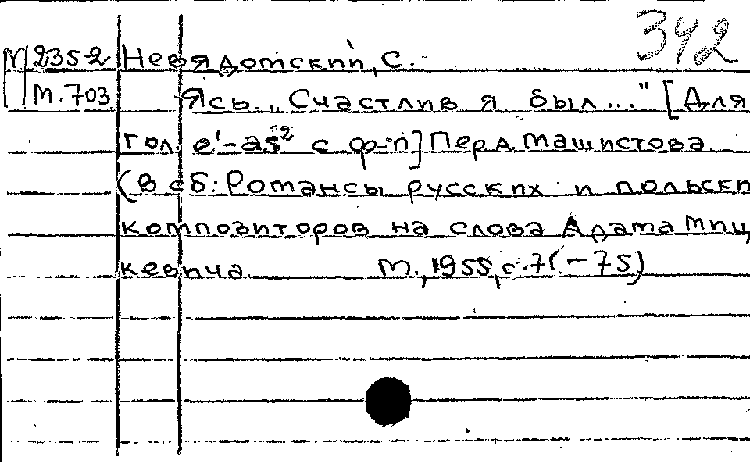 342
М 235-2 Невядомский, С.
М.703 Ясь. „Счастлив я был..." [Для
гол. e'-as² с ф-п] Пер. А. Машистова.
(В сб: Романсы русских и польск
композиторов на слова Адама Миц
кевича. М., 1955, с. 71-75)